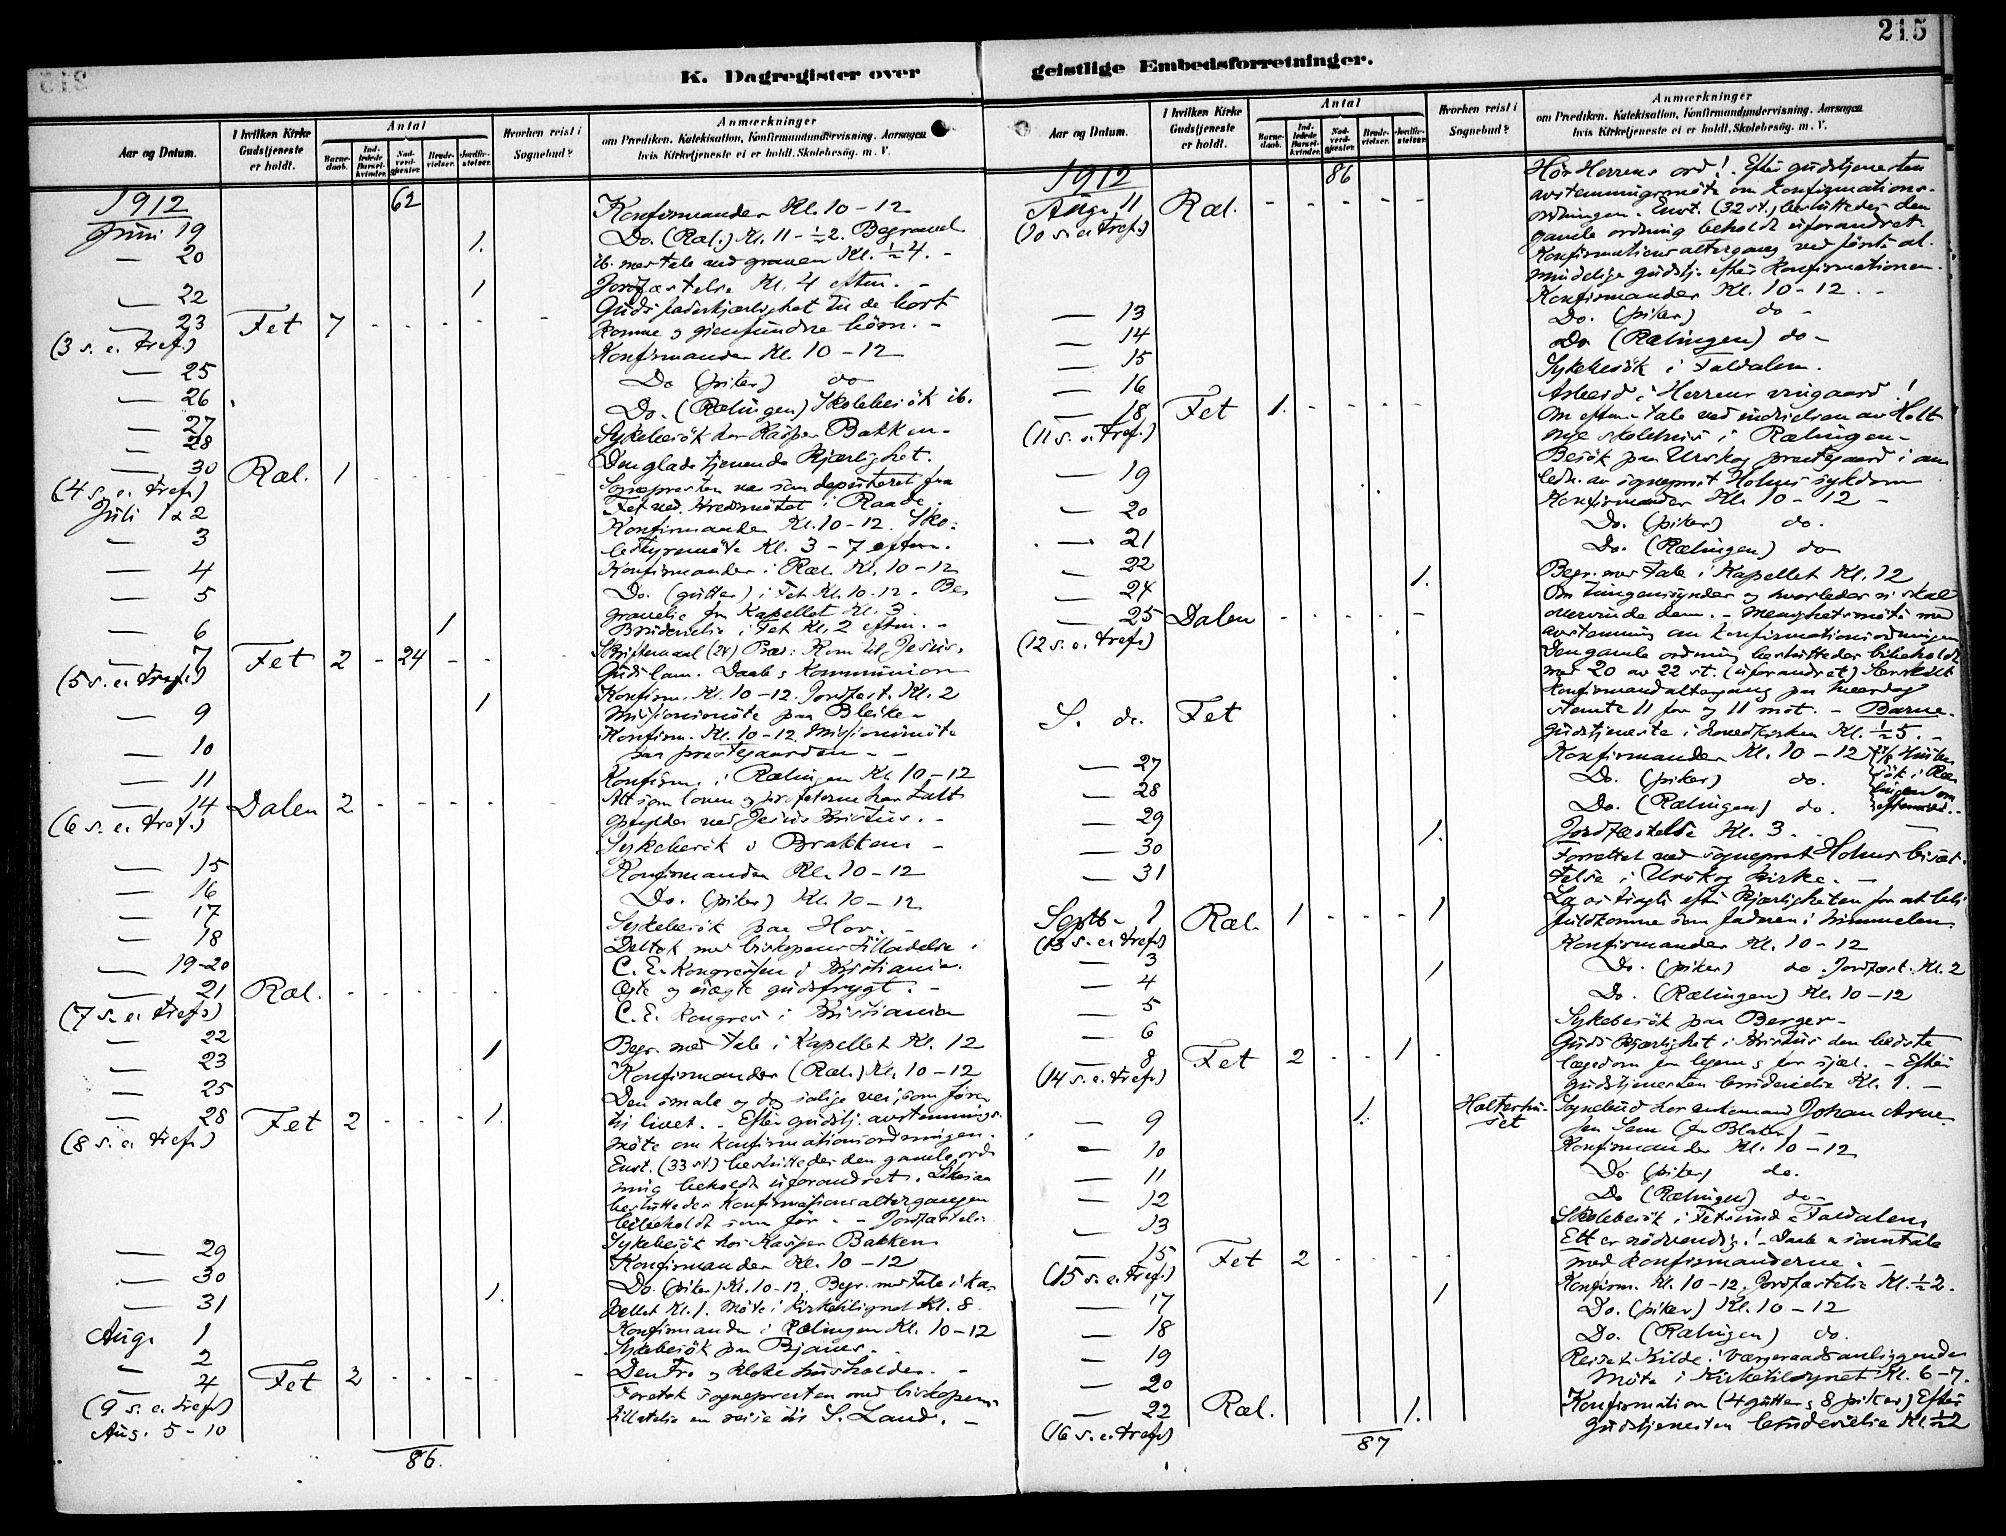 215
K. Dagregister over
geistlige Embedsforretninger.
Aar og Datum.
I hvilken Kirke Gudstjeneste er holdt.
Antal
Barne-daab.
Ind-ledede Barsel-kvinder.
Nad-verd-gjæster.
Brude-vielser.
Jordfæ-stelser.
Hvorhen reist i Sognebud?
Anmærkninger
om Prædiken, Katekisation, Konfirmandundervisning, Aarsagen
hvis Kirketjeneste ei er holdt, Skolebesøg. m. V.
1912
62
Juni 19 Konfirmander Kl. 10-12
20 1. Do. (Ræl.) Kl. 11-½2. Begravel
ib. med tale ved graven Kl. ½4.
22 1 Jordfæstelse Kl. 4 eftm.
23 Fet 7 Guds faderkjærlighet til de bort
(3 s. e. tref.) komne og gjenfundne børn.
25 Konfirmander Kl. 10-12
26 Do (piker) do
27 Do. (Rælingen) Skolebesök ib.
28 Sykebesök hos Kasper Bakken
30 Ræl. 1 Den glade tjenende Kjærlighet.
(4 s. e. tref.)
Juli 1 & 2 Sognepresten var som deputeret fra
Fet ved Kredsmötet i Raade.
3 Konfirmander Kl. 10-12. Sko-
lestyremöte Kl. 3-7 eftm.
4 Konfirmander i Ræl. Kl. 10-12
5 Do. (gutter) i Fet Kl. 10-12. Be
gravelse fra Kapellet Kl. 3.
6 1 Brudevielse i Fet Kl. 2 eftm.
7 Fet 2 24 Skriftemaal (24) Præd: Kom til Jesus,
(5 s. e. tref.) Guds lam. Daab & Kommunion
9 1 Konfirm. Kl. 10-12. Jordfæst. Kl. 2
Missionsmöte paa Bleiken
10 Konfirm. Kl. 10-12. Missionsmöte
paa prestegaarden
11 Konfirm. i Rælingen Kl. 10-12
14 Dalen 2 Alt som loven og profeterne har talt
(6 s. e. tref.) opfyldes ved Jesus Kristus.
15 Sykebesök i Brakken
16 Konfirmander Kl. 10-12
17 Do. (piker) Kl. 10-12
18 Sykebesök paa Hov.
19-20 Deltok med biskopens tilladelse i
C. E. Kongressen i Kristiania.
21 Ræl. Ægte og uægte gudsfrygt.
(7 s. e. tref.)
22 C. E. Kongres i Kristiania
23 1 Begr. med tale i Kapellet Kl. 12
25 Konfirmander (Ræl.) Kl. 10-12
28 Fet 2 1. Den smale og dog salige vei, som fører
(8 s. e. tref.) til livet. Efter gudstj. avstemnings-
möte om konfirmationsordningen.
Enst. (33 st.) besluttedes den gamle ord-
ning beholdt uforandret. Likesaa
besluttedes Konfirmationsaltergangen
bibeholdt som før. Jordfæstelse
29 Sykebesök hos Kasper Bakken
30 Konfirmander Kl. 10-12
31 1. Do. (piker) Kl. 10-12. Begr. med tale i Ka-
pellet Kl. 1. Möte i kirketilsynet Kl. 8.
Aug. 1 Konfirmander i Rælingen Kl. 10-12
2 Sykebesök paa
4 Fet 2 Den tro og kloke husholder.
(9 s. e. tref.)
Aug. 5-10 Foretok sognepresten med biskopens
tillatelse en reise til S. Land.
86.
Aar og Datum.
I hvilken Kirke Gudstjeneste er holdt.
Antal
Barne-daab.
Ind-ledede Barsel-kvinder.
Nad-verd-gjæster.
Brude-vielser.
Jordfæ-stelser.
Hvorhen reist i Sognebud?
Anmærkninger
om Prædiken, Katekisation, Konfirmandundervisning, Aarsagen
hvis Kirketjeneste ei er holdt, Skolebesøg. m. V.
1912
86
Aug. 11 Ræl. Hör Herrens ord! Efter gudstjenesten
(10 s. e. tref.) avstemningsmöte om konfirmations-
ordningen. Enst. (32 st.) besluttedes den
gamle ordning beholdt uforandret.
Konfirmationsaltergang ved förste al-
mindelige gudstj. efter Konfirmationen.
13 Konfirmander Kl. 10-12.
14 Do. (piker) do
15 Do (Rælingen) do
16 Sykebesök i Faldalen.
18 Fet 1. Arbeid i Herrens vingaard!
(11 s. e. tref.) Om eftm. tale ved indvielsen av Holt
nye skolehus i Rælingen.
19 Besök paa Urskog prestegaard i an
ledn. av sogneprest Holms sykdom
20 Konfirmander Kl. 10-12
21 Do. (piker) do.
22 Do. (Rælingen) do
24 1. Begr. med tale i Kapellet Kl. 12
25 Dalen Om tungesynder og hvorledes vi skal
(12 s. e. tref.) overvinde dem. Menighetsmöte med
avstemning om konfirmationsordningen
Den gamle ordning besluttedes bibeholdt
med 20 av 22 st. (uforandret) Særskilt
konfirmandaltergang paa hverdag
stemte 11 for og 11 mot. Barne-
S. d. Fet gudstjeneste i hovedkirken Kl. ½5.
27 Konfirmander Kl. 10-12
28 Do. (piker) do.
29 Do. (Rælingen) do.
30 1. Jordfæstelse Kl. 3.
31 Forrettet ved sogneprest Holms bisæt-
telse i Urskog kirke.
Septb. 1 Ræl. 1 1 La os tragte efter Kjærligheten for at bli
(13 s. e. tref.) fuldkomne som faderen i himmelen.
3 Konfirmander Kl. 10-12
4 1 Do. (piker) do. Jordfæst. Kl. 2
5 Do. (Rælingen) Kl. 10-12
6 Sykebesök paa Berger
8 Fet 2 1 Guds Kjærlighet i Kristus den bedste
(14 s. e. tref.) lægedom for legem & for sjæl. Efter
gudstjenesten brudevielse Kl. 1.
9 1. Halterhu-set Sognebud hos enkemand Johan Arne-
sen
10 Konfirmander Kl. 10-12
11 Do (piker) do.
12 Do (Rælingen) do
13 Skolebesök i Fetsund & Faldalen
15 Fet 2 Ett er nödvendig! Daab & samtale
(15 s. e. tref.) med konfirmanderne.
17 1 Konfirm. Kl. 10-12. Jordfæstelse Kl. ½2.
18 Do. (piker) Kl. 10-12
19 Do. (Rælingen) do.
20 Reiset Kilde i Værgeraadsanliggender
Möte i Kirketilsynet Kl. 6-7.
22 Ræl. 1. Konfirmation (4 gutter & 8 piker) Efter
(16 s. e. tref.) gudstjenesten brudevielse Kl. ½2
87